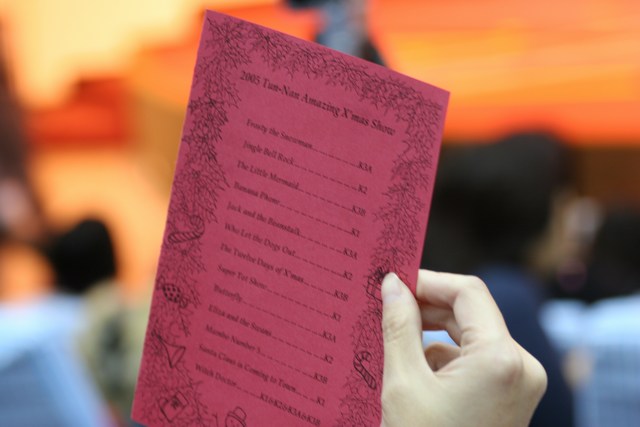 2005 Tun-Nan Amazing X'mas Show
Frosty the Snowman K3A
Jingle Bell Rock K2
The Little Mermaid K3B
Banana Phone K1
Jack and the Beanstalk K3A
Who Let the Dogs Out K2
The Twelve Days of X'mas K3B
Super Toy Show K2
Butterfly K3A
Eliza and the K2
Mambo Number 5 K3B
Santa Claus is Coming to Town K1
Witch Doctor K1&K2&K3A&K3B